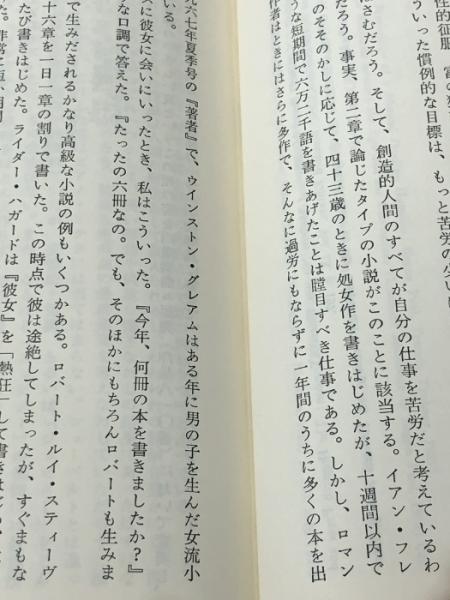 性的征服、富の
ういった慣例的な目標は、もっと苦労の少
さむだろう。そして、創造的人間のすべてが自分の仕事を苦労だと考えているわ
だろう。事実、第二章で論じたタイプの小説がこのことに該当する。イアン・フレ
のそそのかしに応じて、四十三歳のときに処女作を書きはじめたが、十週間以内で
うな短期間で六万二千語を書きあげたことは瞠目すべき仕事である。しかし、ロマン
作者はときにはさらに多作で、そんなに過労にもならずに一年間のうちに多くの本を出
九六七年夏季号の『著者』で、ウインストン・グレアムはある年に男の子を生んだ女流小
いる。
に彼女に会いにいったとき、私はこういった。『今年、何冊の本を書きましたか?』
な口調で答えた。『たったの六冊なの。でも、そのほかにもちろんロバートも生みま
で生みだされるかなり高級な小説の例もいくつかある。ロバート・ルイ・スティーヴ
十六章を一日一章の割りで書いた。この時点で彼は途絶してしまったが、すぐまもな
び書きはじめた。ライダー・ハガードは『彼女』を「熱狂」して書き
た。非常に短い期間